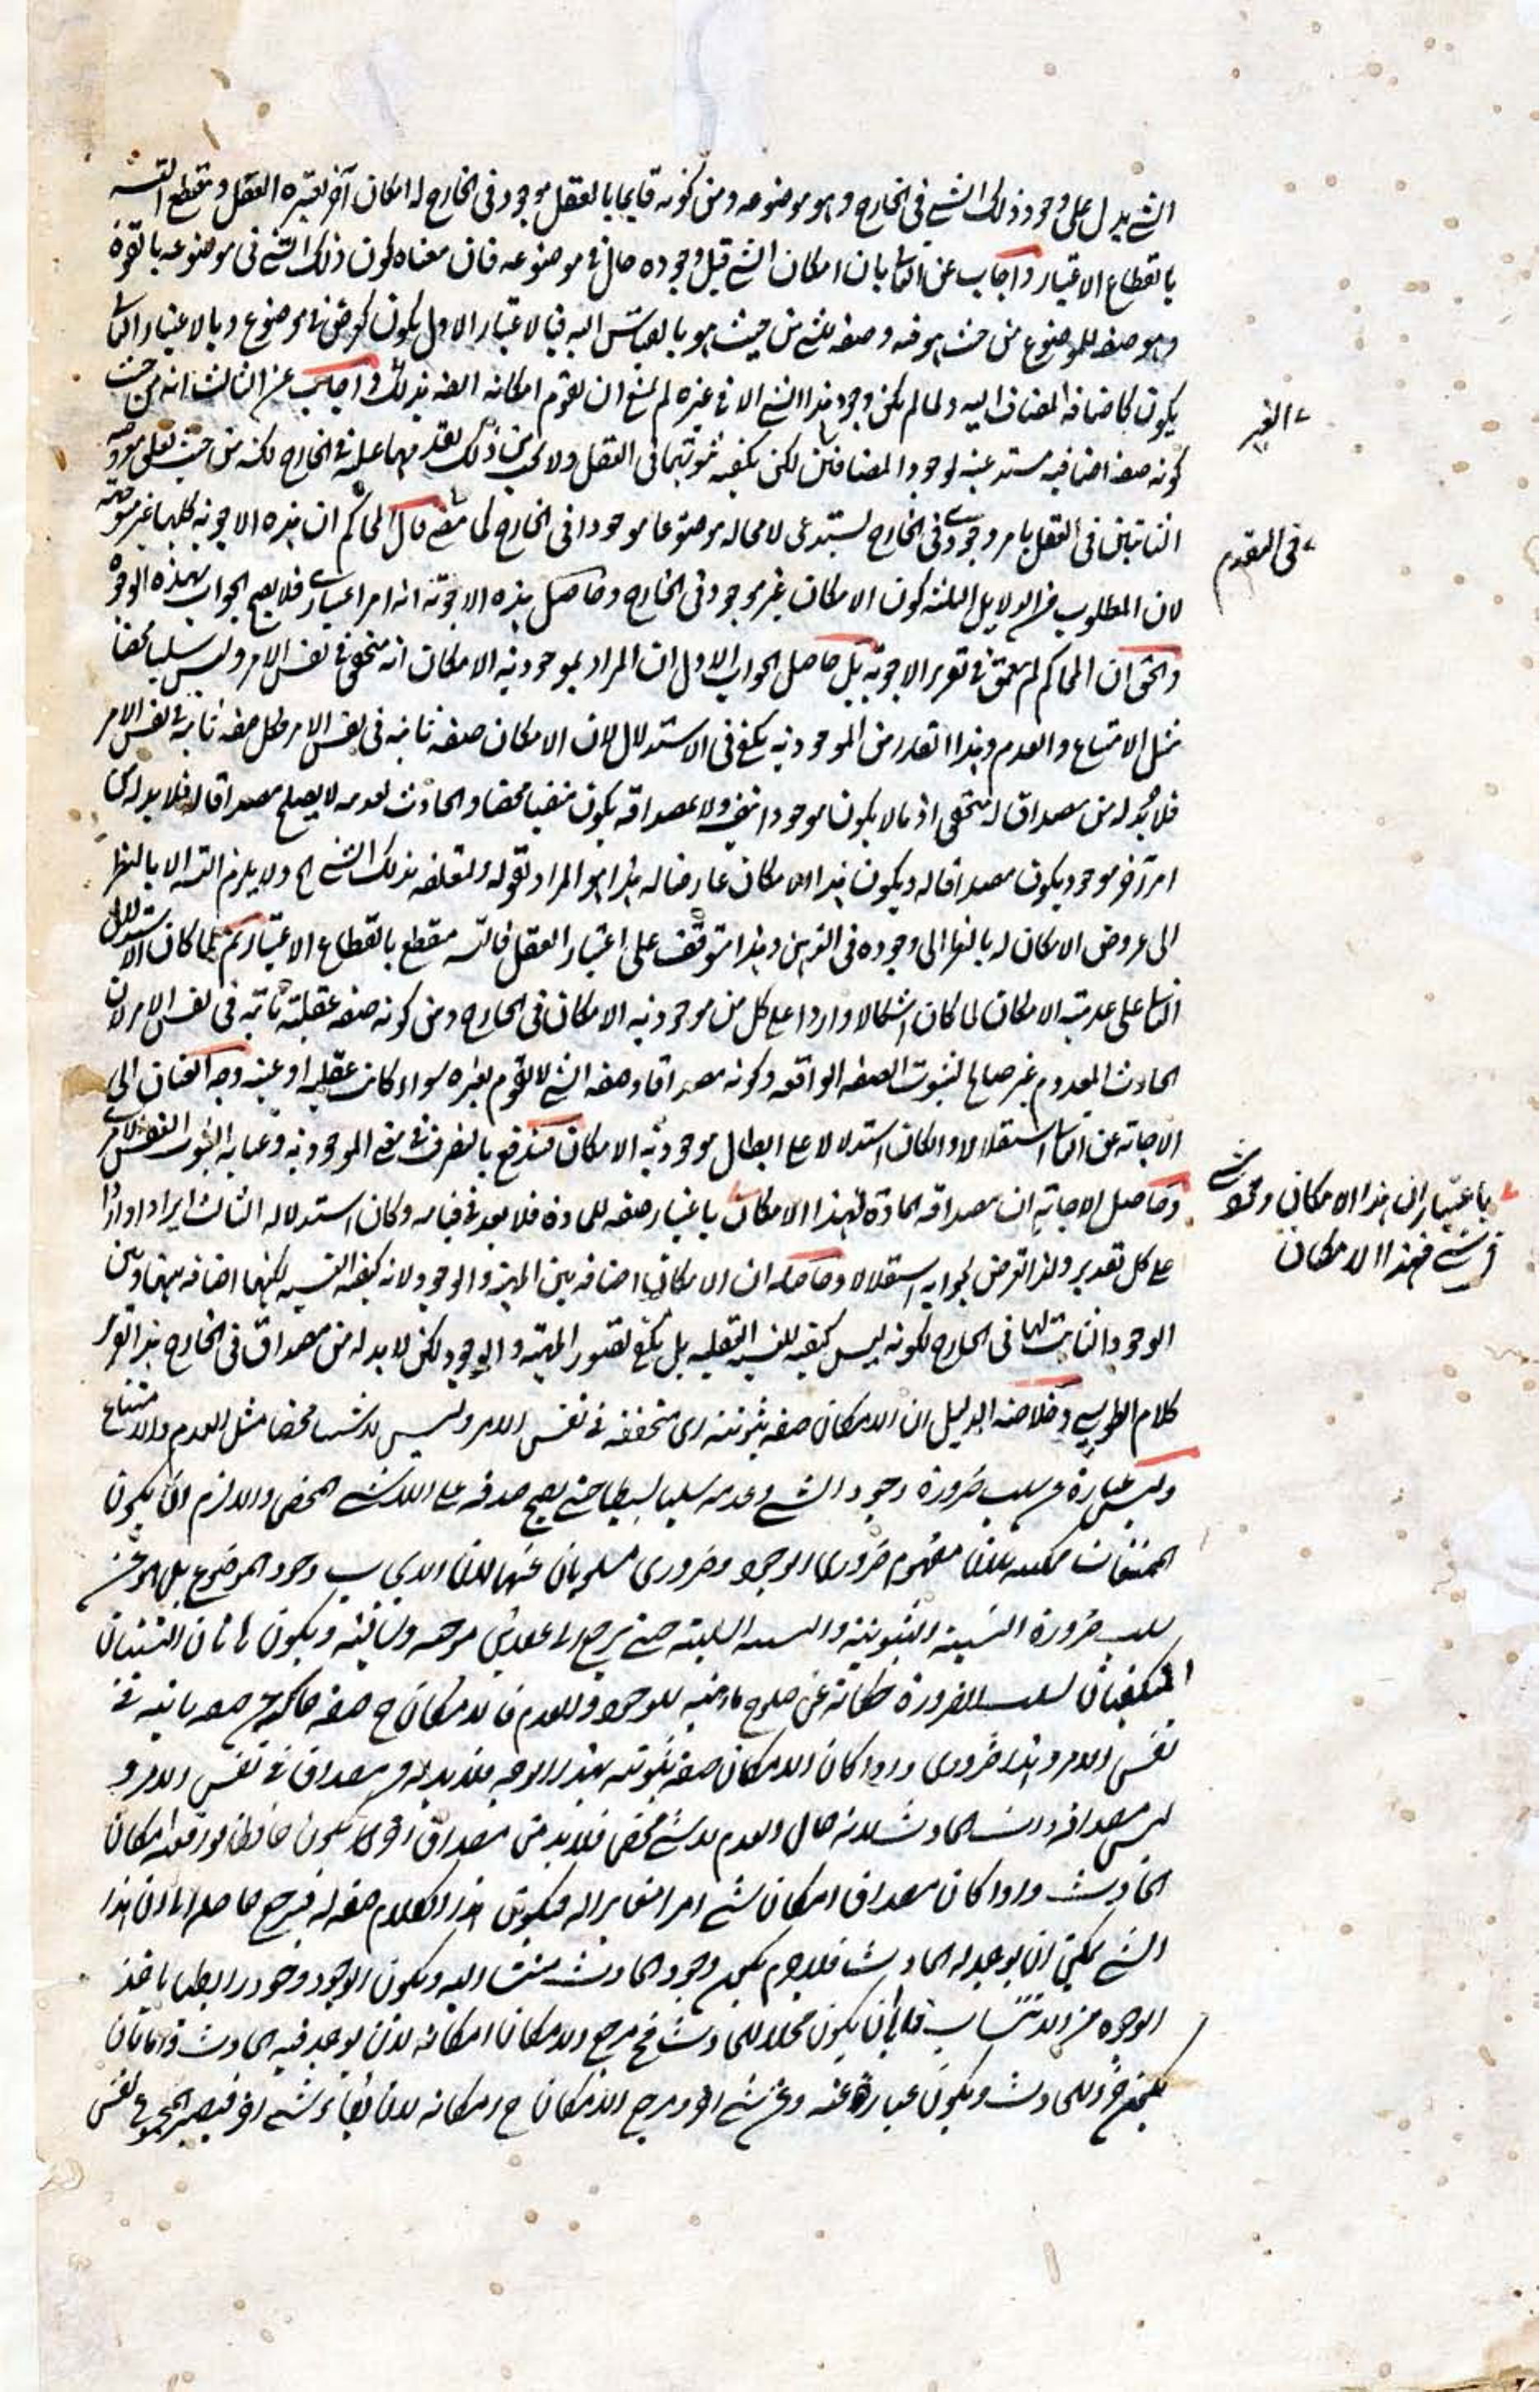 الشي يدل على وجود ذلك الشي في الخارج وهو موضوعه ومن كونه قايما بالعقل موجود في الخارج له امكان آخر يعتبره العقل وينقطع التسـ
بانقطاع الاعتبار واجاب عن الثاني بان امكان الشي قبل وجوده حال في موضوعه فان معناه كون ذلك الشي في موضوعه بالقوة
وهو صفة للموضوع من حيث هو فيه وصفة للشي من حيث هو بالقياس اليه فبالاعتبار الاول يكون كعرض في موضوع وبالاعتبار الثاني
يكون كاضافة المضاف اليه ولما لم يكن وجود هذا الشي الا في غيره لم يمتنع ان يقوم امكانه ايضه بذلك واجاب عن الثالث انه من حيث
كونه صفة اضافية مستدعية لوجود المضافين لكن يكفيه ثبوتهما في العقل ولا يجب من ذلك تقدمهما عليه في الخارج لكنه من حيث تعلق معروضيه
الثابتين في العقل بامر وجودي في الخارج يستدعى لامحالة موضوعا موجودا في الخارج كما مضى قال المحاكم ان هذه الاجوبة كلها غير موجهة
لان المطلوب من الدلايل الثلثة كون الامكان غير موجود في الخارج وحاصل هذه الاجوبة انه امر اعتباري فلا يصح الجواب بهذه الوجوه
والحق ان المحاكم لم يتعمق في تقرير الاجوبة بل حاصل الجواب الاول ان المراد بموجودية الامكان انه متحقق في نفس الامر وليس سلبا محضا
مثل الامتناع والعدم وهذا القدر من الموجودية يكفي في الاستدلال لان الامكان صفة ثابتة في نفس الامر وكل صفة ثابتة في نفس الامر
فلا بد له من مصداق له تحقق اذ مالا يكون موجودا بنفسه ولا بمصداقه يكون منفيا محضا والحادث لعدمه لا يصلح مصداقا له فلا بد له من
امر آخر موجود يكون مصداقا له ويكون هذا الامكان عارضا له هذا هو المراد بقوله ولتعلقه بذلك الشي الخ ولا يلزم التسـ الا بالنظر
الى عروض الامكان له بالنظر الى وجوده في الذهن وهذا متوقف على اعتبار العقل فالتسـ ينقطع بانقطاع الاعتبار ثم لما كان الاستدلال
الثاني على عدمية الامكان لما كان اشكالا واردا على كل من موجودية الامكان في الخارج ومن كونه صفة عقلية ثابتة في نفس الامر لان
الحادث المعدوم غير صالح لثبوت الصفة الواقعة وكونه مصداقا وصفة الشي لا تقوم بغيره سواء كانت عقلية او عينية وجه العنان الى
الاجابة عن الثاني استقلالا وان كان استدلالا على ابطال موجودية الامكان فيندفع بالتصرف في معنى الموجودية وعناية الثبوت النفس الامري
وحاصل الاجابة ان مصداقه المادة فهذا الامكان باعتبار صفة للمادة فلا بعد في قيامه وكان استدلاله الثالث ايرادا واردا
على كل تقدير ولذا تعرض لجوابه استقلالا وحاصله ان الامكان اضافة بين المهية والوجود لانه كيفية النسبة لكنها اضافة بينها وبين
الوجود الثابت لها في الخارج لكونه ليس كيفية للنسبة العقلية بل يكفي تصور المهية والوجود لكن لا بد له من مصداق في الخارج هذا تقرير
كلام الطوسي وخلاصة الدليل ان الامكان صفة ثبوتية اى متحققة في نفس الامر وليس لا شيئا محضا مثل العدم والامتناع
وليس عبارة عن سلب ضرورة وجود الشي وعدمه سلبا بسيطا حتى يصح صدقه على اللاشي المحض والا لزم ان يكون
الممتنعات ممكنة لان مفهوم ضرورى الوجود وضرورى
سلب ضرورة النسبة الثبوتية والنسبة السلبية حتى يرجع الى عقدين موجبة وسالبة ويكون هاتان النسبتان
المتكيفتان بسلب الضرورة حكاية عن صلوح مادتها للوجود وللعدم فالامكان ح صفة
نفس الامر وهذا ضرورى واذا كان الامكان صفة ثبوتية بهذا الوجه فلا بد له من مصداق في نفس الامر و
ليس مصداقه ذات الحادث لانه حال العدم لا شي محض فلا بد من مصداق اخر
الحادث واذا كان مصداق امكان شي امرا مغايرا له فيكون هذا الكلام صفة له فيرجع حاصله الى ان هذا
الشي يمكن ان يوجد له الحادث فلا جرم يكون وجود الحادث منتسبا اليه ويكون الوجود وجودا رابطيا باخذ
الوجوه من الانتساب فاما ان يكون محلا للحادث فح مرجع الامكان امكانه لان يوجد فيه الحادث واما ان
يكون جزء للحادث ويكون عبارة عنه وعن شي اخر ومرجع الامكان ح امكانه لان يقارنه شي اخر فيصير المجموع نفس
الغير
في المقدم
باعتبار ان هذا الامكان
في شي فهذا الامكان